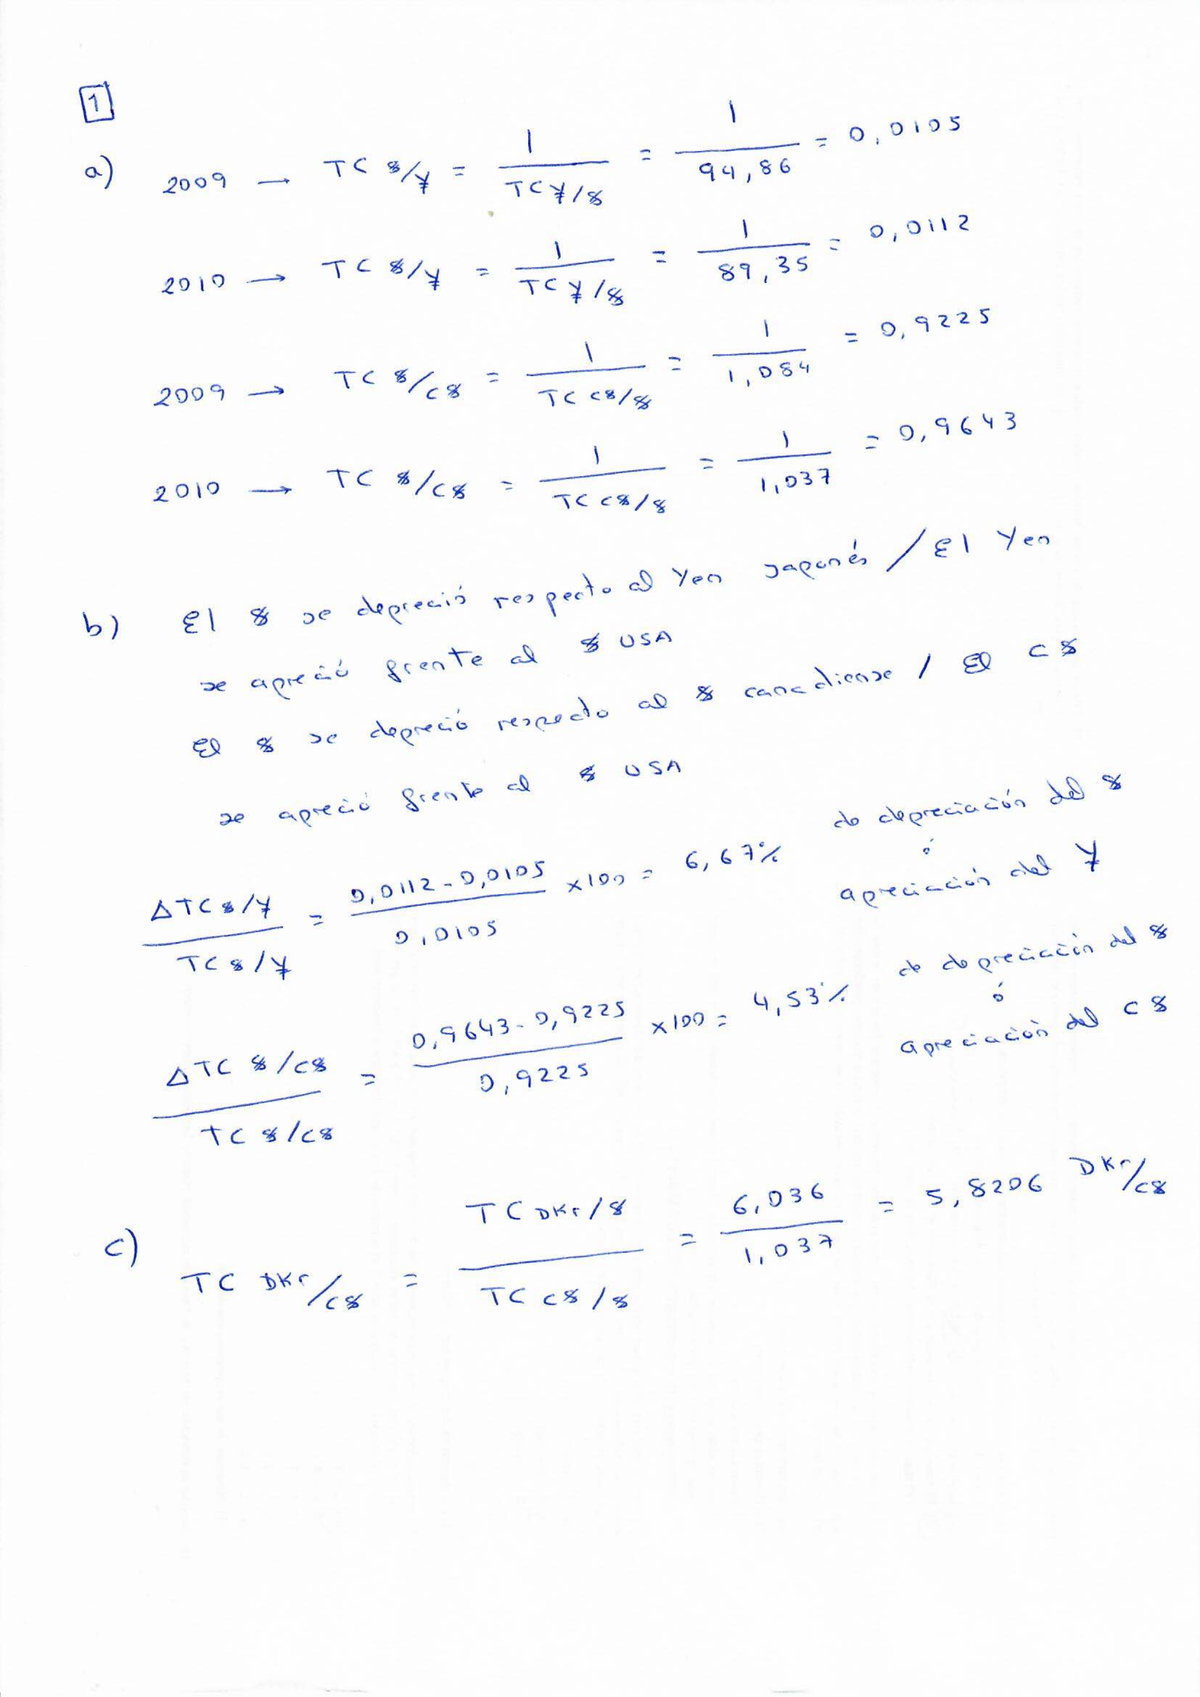 1
a) 2009 → TC $/¥ = 1 / TC ¥/$ = 1 / 94,86 = 0,0105
2010 → TC $/¥ = 1 / TC ¥/$ = 1 / 89,35 = 0,0112
2009 → TC $/C$ = 1 / TC C$/$ = 1 / 1,084 = 0,9225
2010 → TC $/C$ = 1 / TC C$/$ = 1 / 1,037 = 0,9643
b) El $ se depreció respecto al Yen Japonés / El Yen
se apreció frente al $ USA
El $ se depreció respecto al $ canadiense / El C$
se apreció frente al $ USA
ΔTC $/¥ / TC $/¥ = 0,0112 - 0,0105 / 0,0105 x100 = 6,67% de depreciación del $
ó
apreciación del ¥
ΔTC $/C$ / TC $/C$ = 0,9643 - 0,9225 / 0,9225 x100 = 4,53% de depreciación del $
ó
apreciación del C$
c) TC DKr/C$ = TC DKr/$ / TC C$/$ = 6,036 / 1,037 = 5,8206 DKr/C$